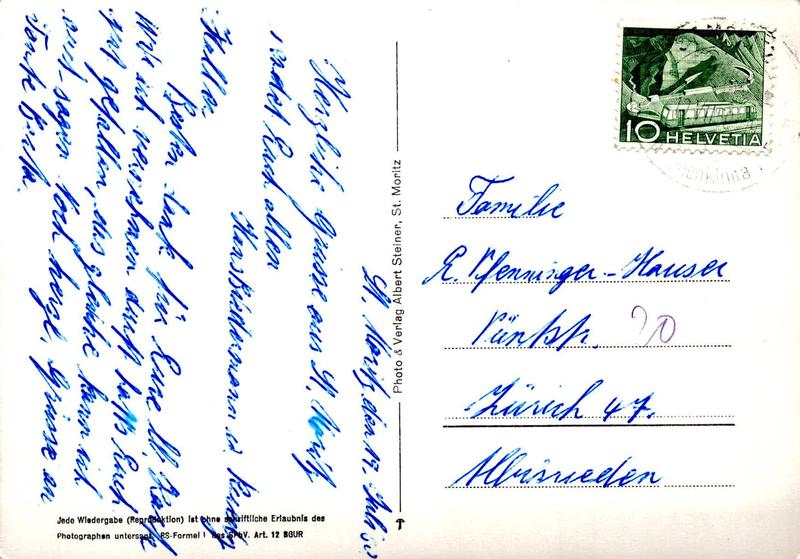 St. Moritz den 17. Juli 50
Herzliche Grüsse aus St. Moritz
sendet Euch allen
Hans Bidermann
Hallo.
Besten Dank für Eure
Wie ich vernehmen durft hatts Euch
gut gefallen, das glaube kann ich
auch sagen. Noch herzl. Grüsse an
Tante Berta.
Photo & Verlag Albert Steiner, St. Moritz
10 HELVETIA
Familie
R. Pfenninger-Hauser
Püntstr. 20
Zürich 47.
Albisrieden
Jede Wiedergabe (Reproduktion) ist ohne schriftliche Erlaubnis des
Photographen untersagt. PS-Formel ! des SPhV. Art. 12 BGUR